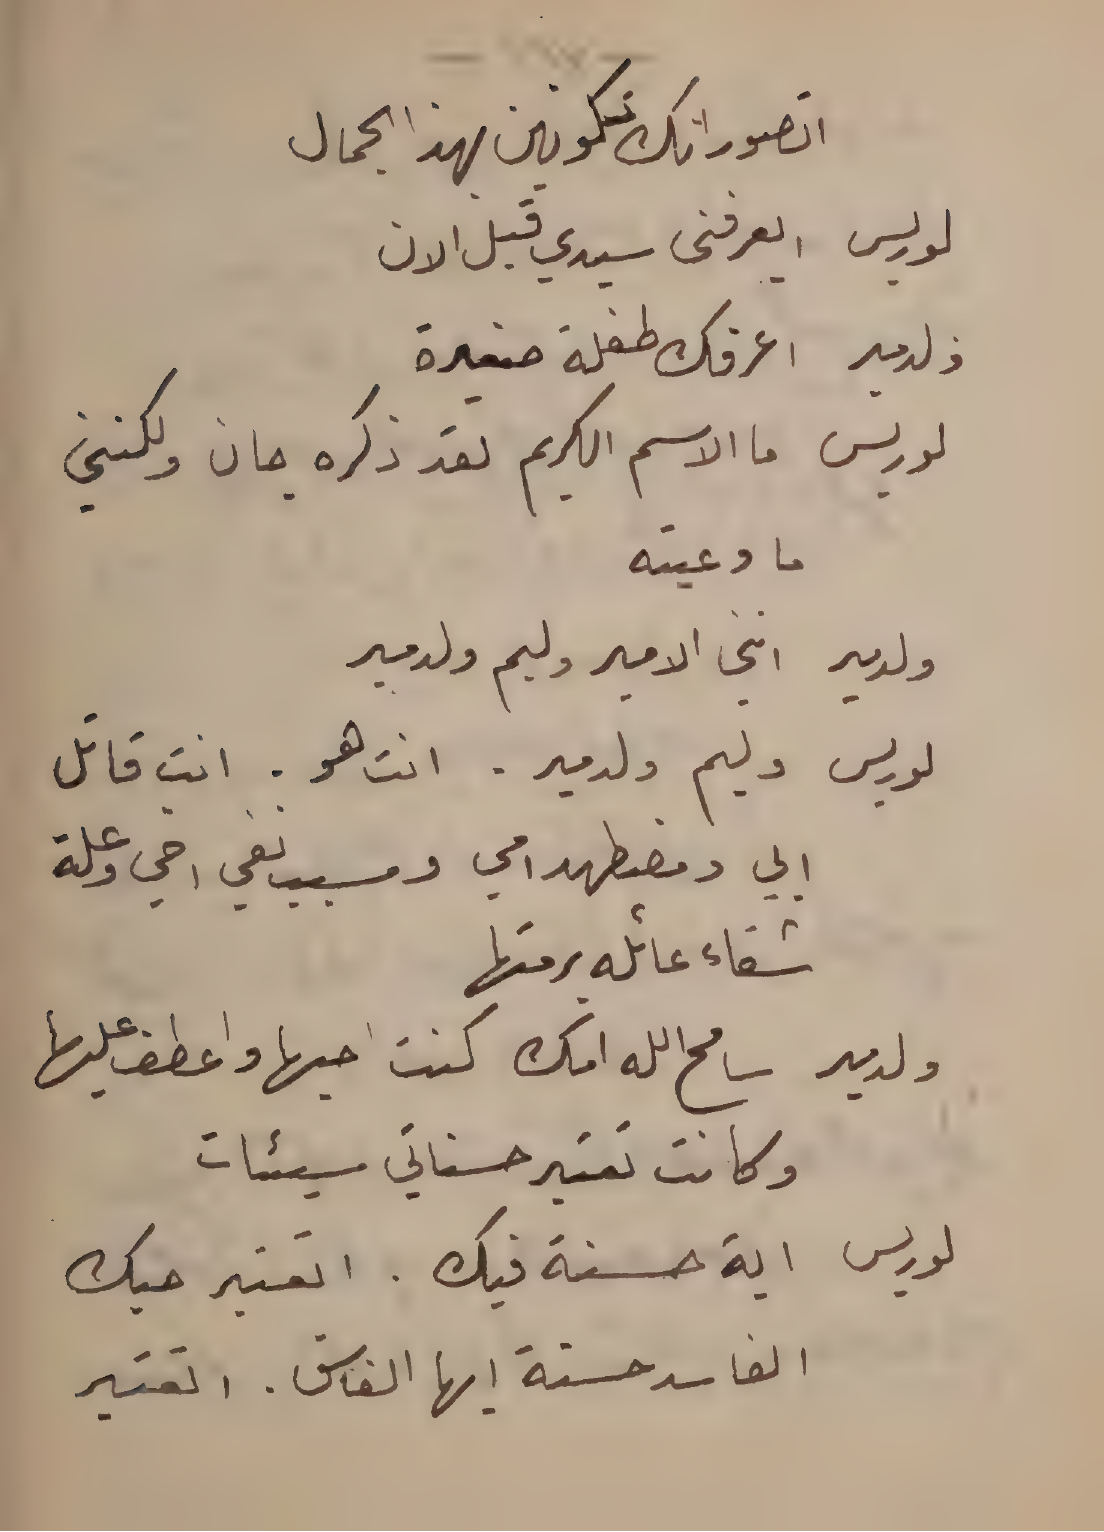 اتصور انك تكونين بهذا الجمال
لوريس ايعرفنى سيدي قبل الان
ولدمير اعرفك طفلة صغيرة
لوريس ما الاسم الكريم لقد ذكره جان ولكننى
ما وعيته
ولدمير اننى الامير وليم ولدمير
لوريس وليم ولدمير . انت هو . انت قاتل
ابي ومضطهد امي ومسبب نفي اخي وعلة
شقاء عائله برمتها
ولدمير سامح الله امك كنت احبها واعطف عليها
وكانت تعتبر حسناتي سيئات
لوريس اية حسنة فيك . اتعتبر حبك
الفاسد حسنة ايها الفاسق . اتعتبر